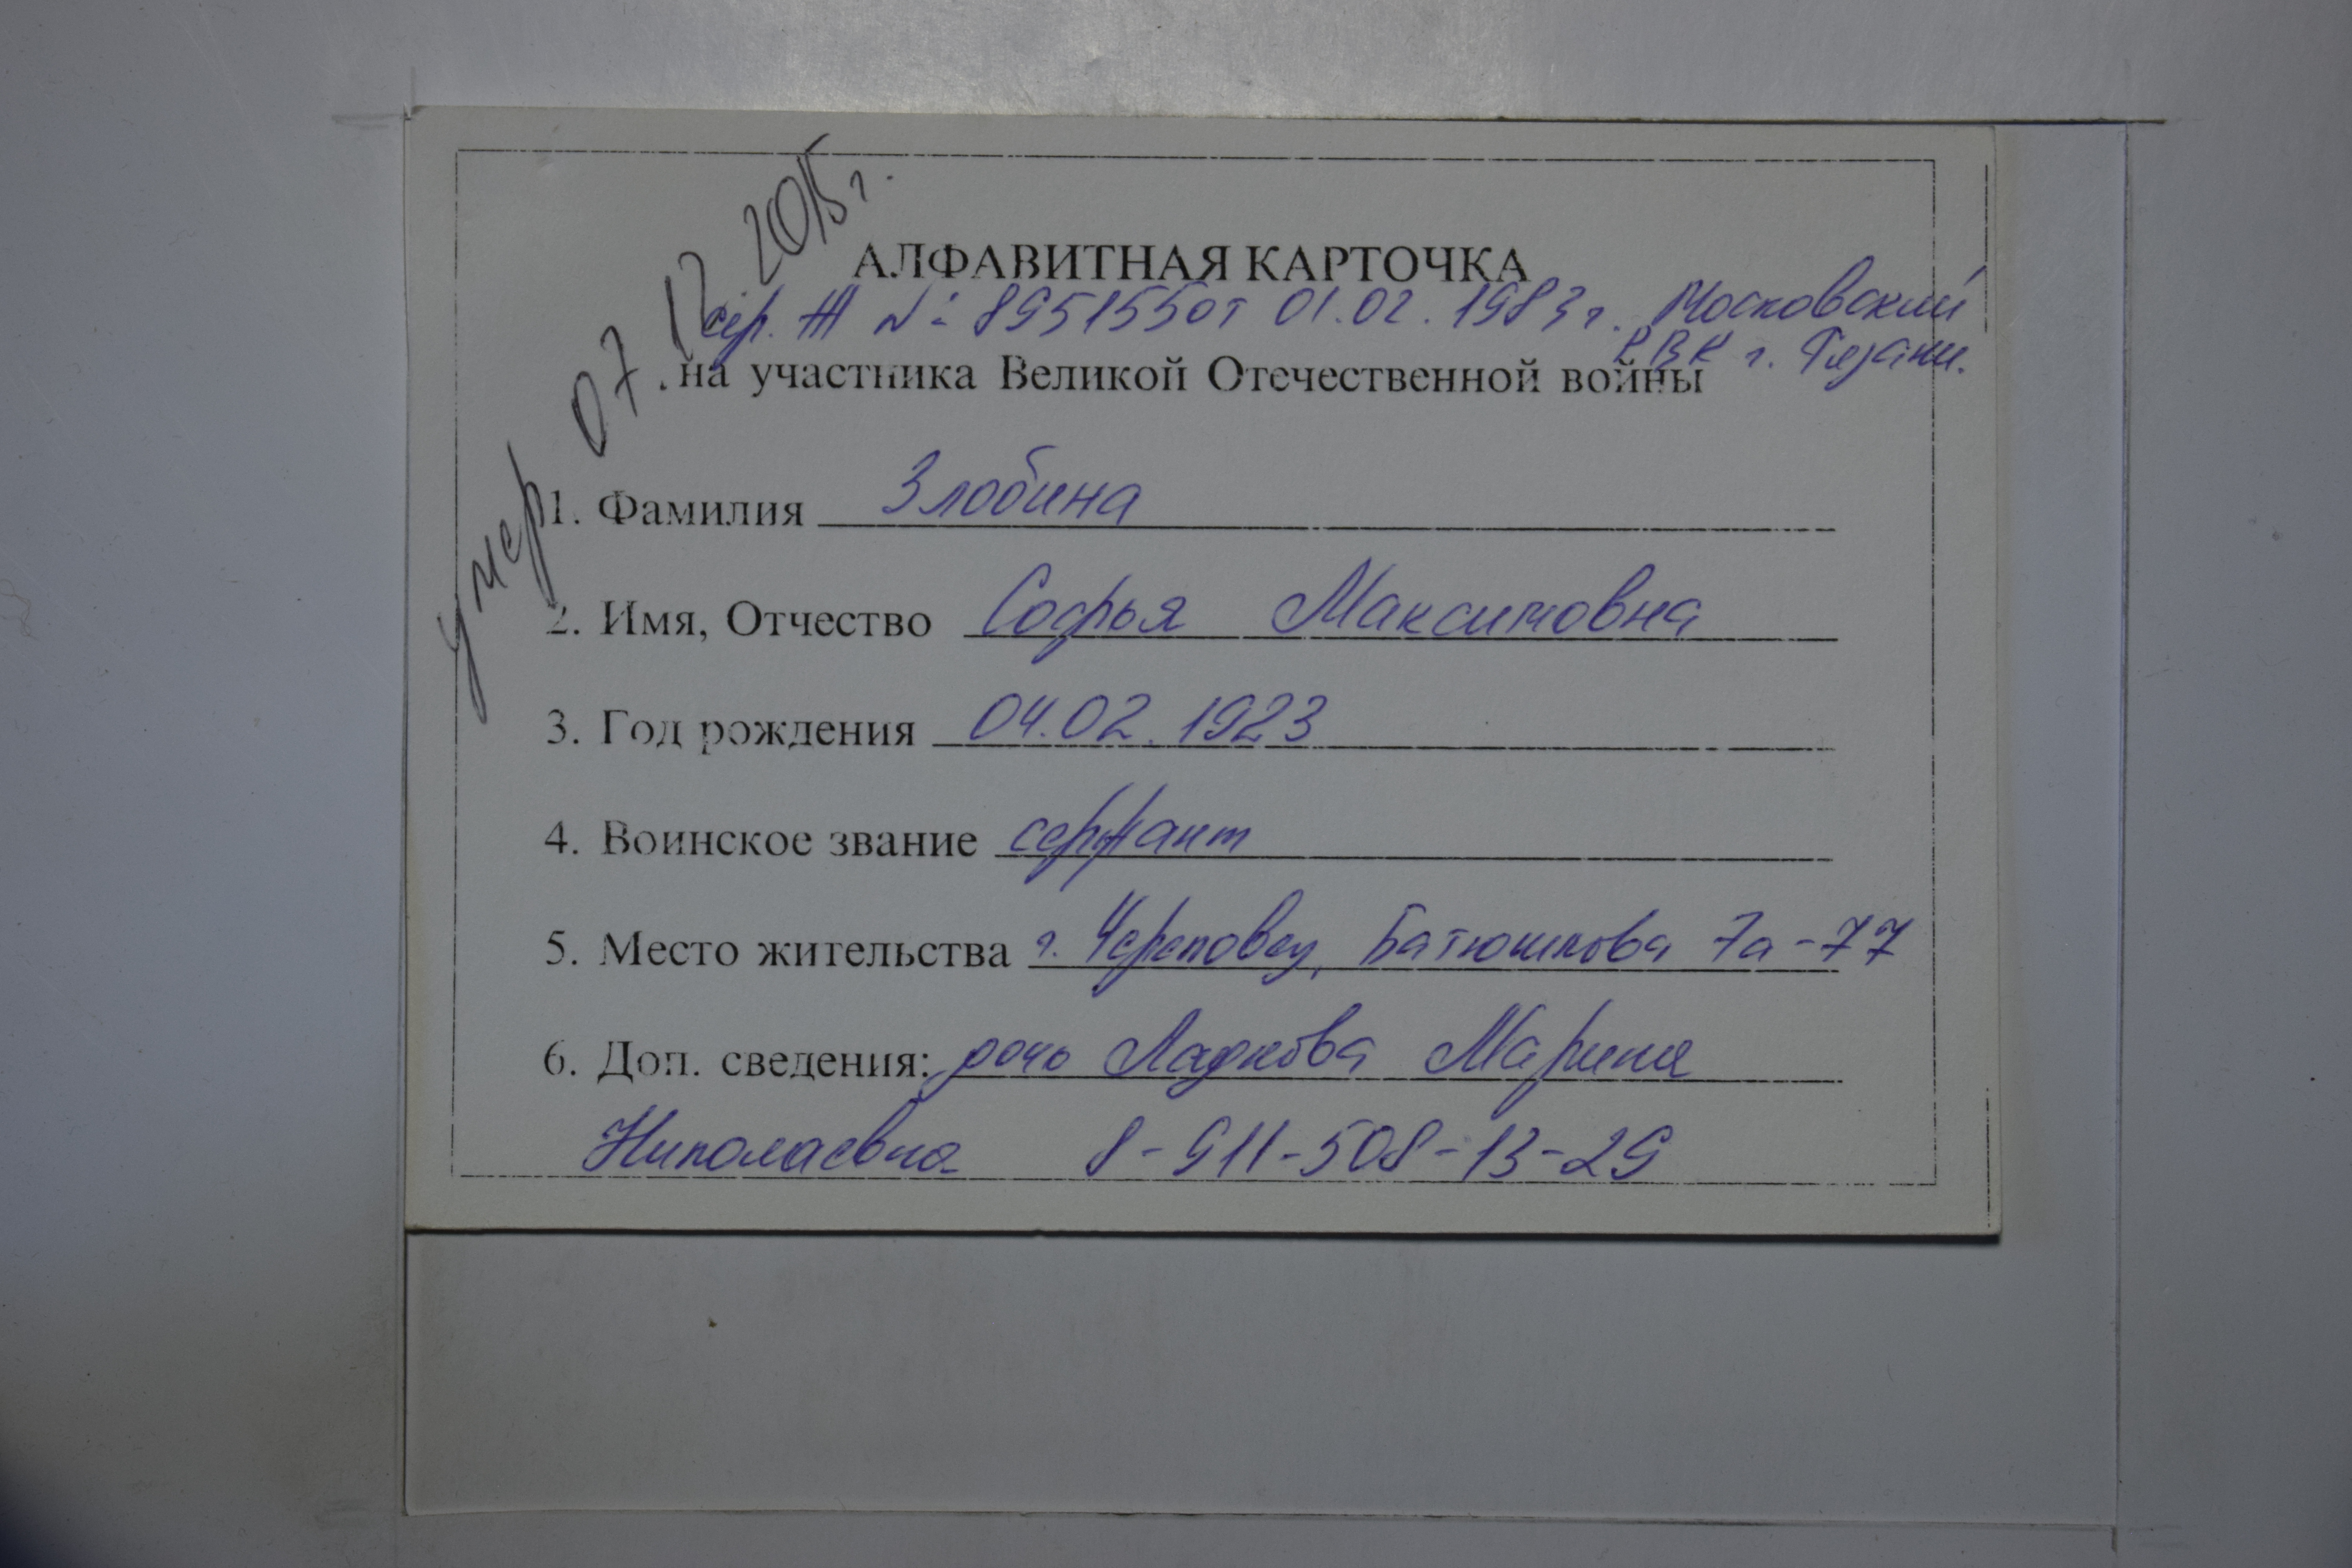 умер 07.12.2015г.
АЛФАВИТНАЯ КАРТОЧКА
сер. Ж № 8951550т 01.02.1983г. Московский
РВК г. Рязани.
на участника Великой Отечественной войны
1. Фамилия Злобина
2. Имя, Отчество Софья Максимовна
3. Год рождения 04.02.1923
4. Воинское звание сержант
5. Место жительства г. Череповец, Батюшкова 7а-77
6. Доп. сведения: дочь Ладкова Марина
Николаевна 8-911-508-13-29